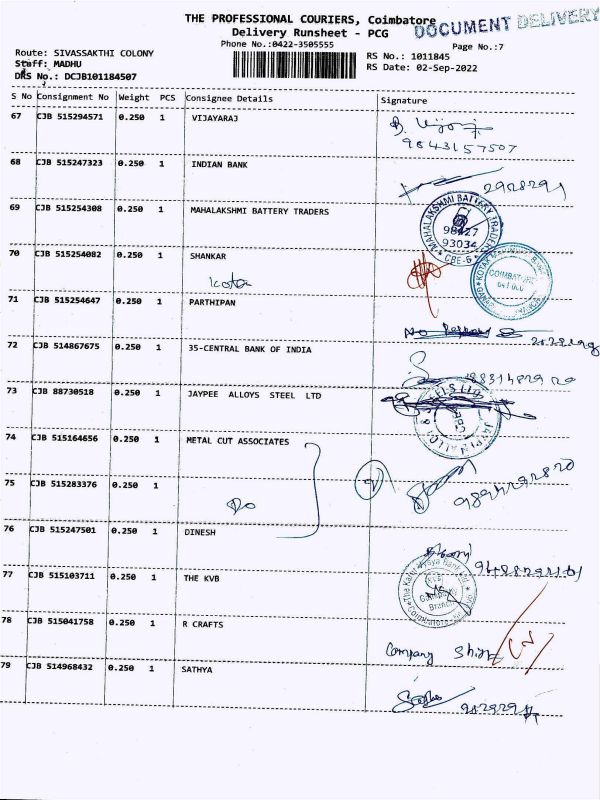 THE PROFESSIONAL COURIERS, Coimbatore
DOCUMENT DELIVERY
Delivery Runsheet - PCG
Phone No.:0422-3505555
Page No.:7
Route: SIVASSAKTHI COLONY
RS No.: 1011845
Staff: MADHU
RS Date: 02-Sep-2022
DRS No.: DCJB101184507
S No Consignment No Weight PCS Consignee Details Signature
67 CJB 515294571 0.250 1 VIJAYARAJ
9843157507
68 CJB 515247323 0.250 1 INDIAN BANK
69 CJB 515254308 0.250 1 MAHALAKSHMI BATTERY TRADERS
MAHALAKSHMI BATTERY TRADERS
93034
CBE-6
70 CJB 515254082 0.250 1 SHANKAR
COIMBATORE
71 CJB 515254647 0.250 1 PARTHIPAN
72 CJB 514867675 0.250 1 35-CENTRAL BANK OF INDIA
73 CJB 88730518 0.250 1 JAYPEE ALLOYS STEEL LTD
74 CJB 515164656 0.250 1 METAL CUT ASSOCIATES
75 CJB 515283376 0.250 1
Do
76 CJB 515247501 0.250 1 DINESH
77 CJB 515103711 0.250 1 THE KVB
Branch
78 CJB 515041758 0.250 1 R CRAFTS
Company
79 CJB 514968432 0.250 1 SATHYA